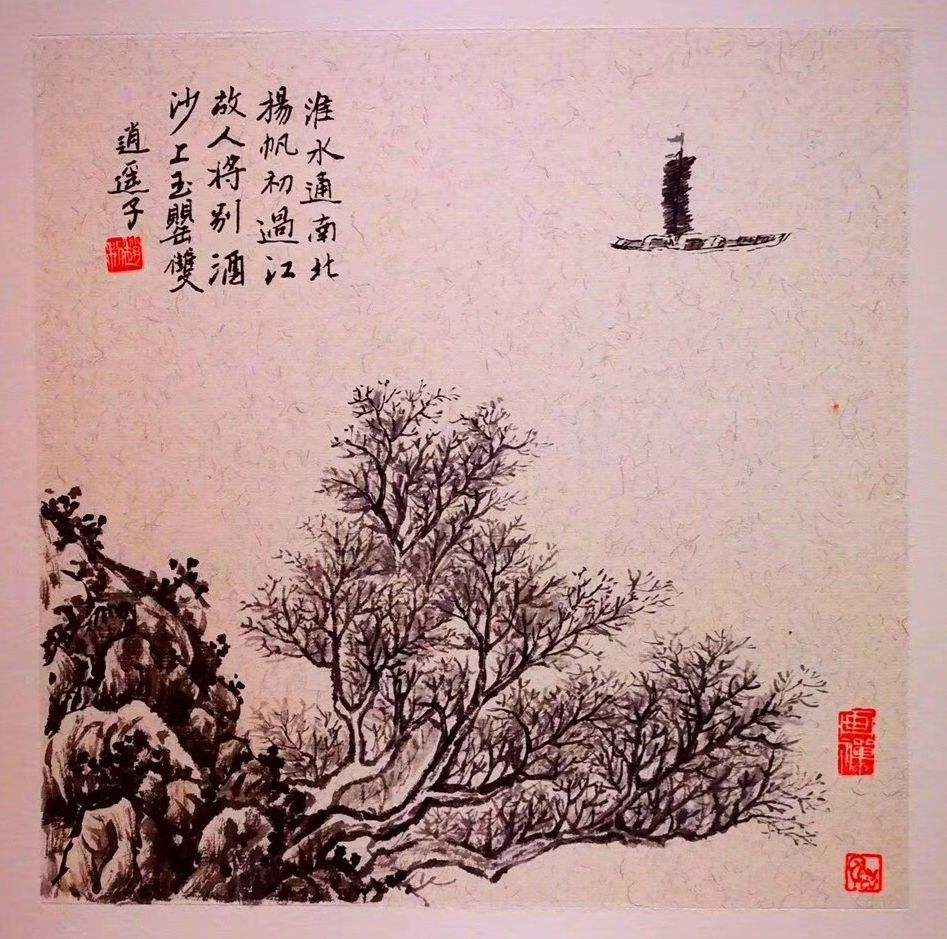 淮水通南北
揚帆初過江
故人將別酒
沙上玉罌雙
逍遥子